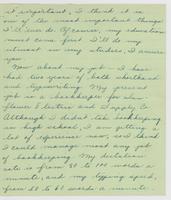 it important, I think it is
one of the most important things
I'll do. Of course, my education
must come first. I'll do my
utmost in my studies, I assure
you.
Now about my job - I have
had two years of both shorthand
and typewriting. My present
job is a bookkeeper for
Flower Electric and Supply Co.
Although I didn't take bookkeeping
in high school, I am getting a
lot of experience now, and think
I could manage most any job
of bookkeeping. My dictation
rate is from 80 to 100 words a
minute, and my typing speed,
from 50 to 60 words a minute.